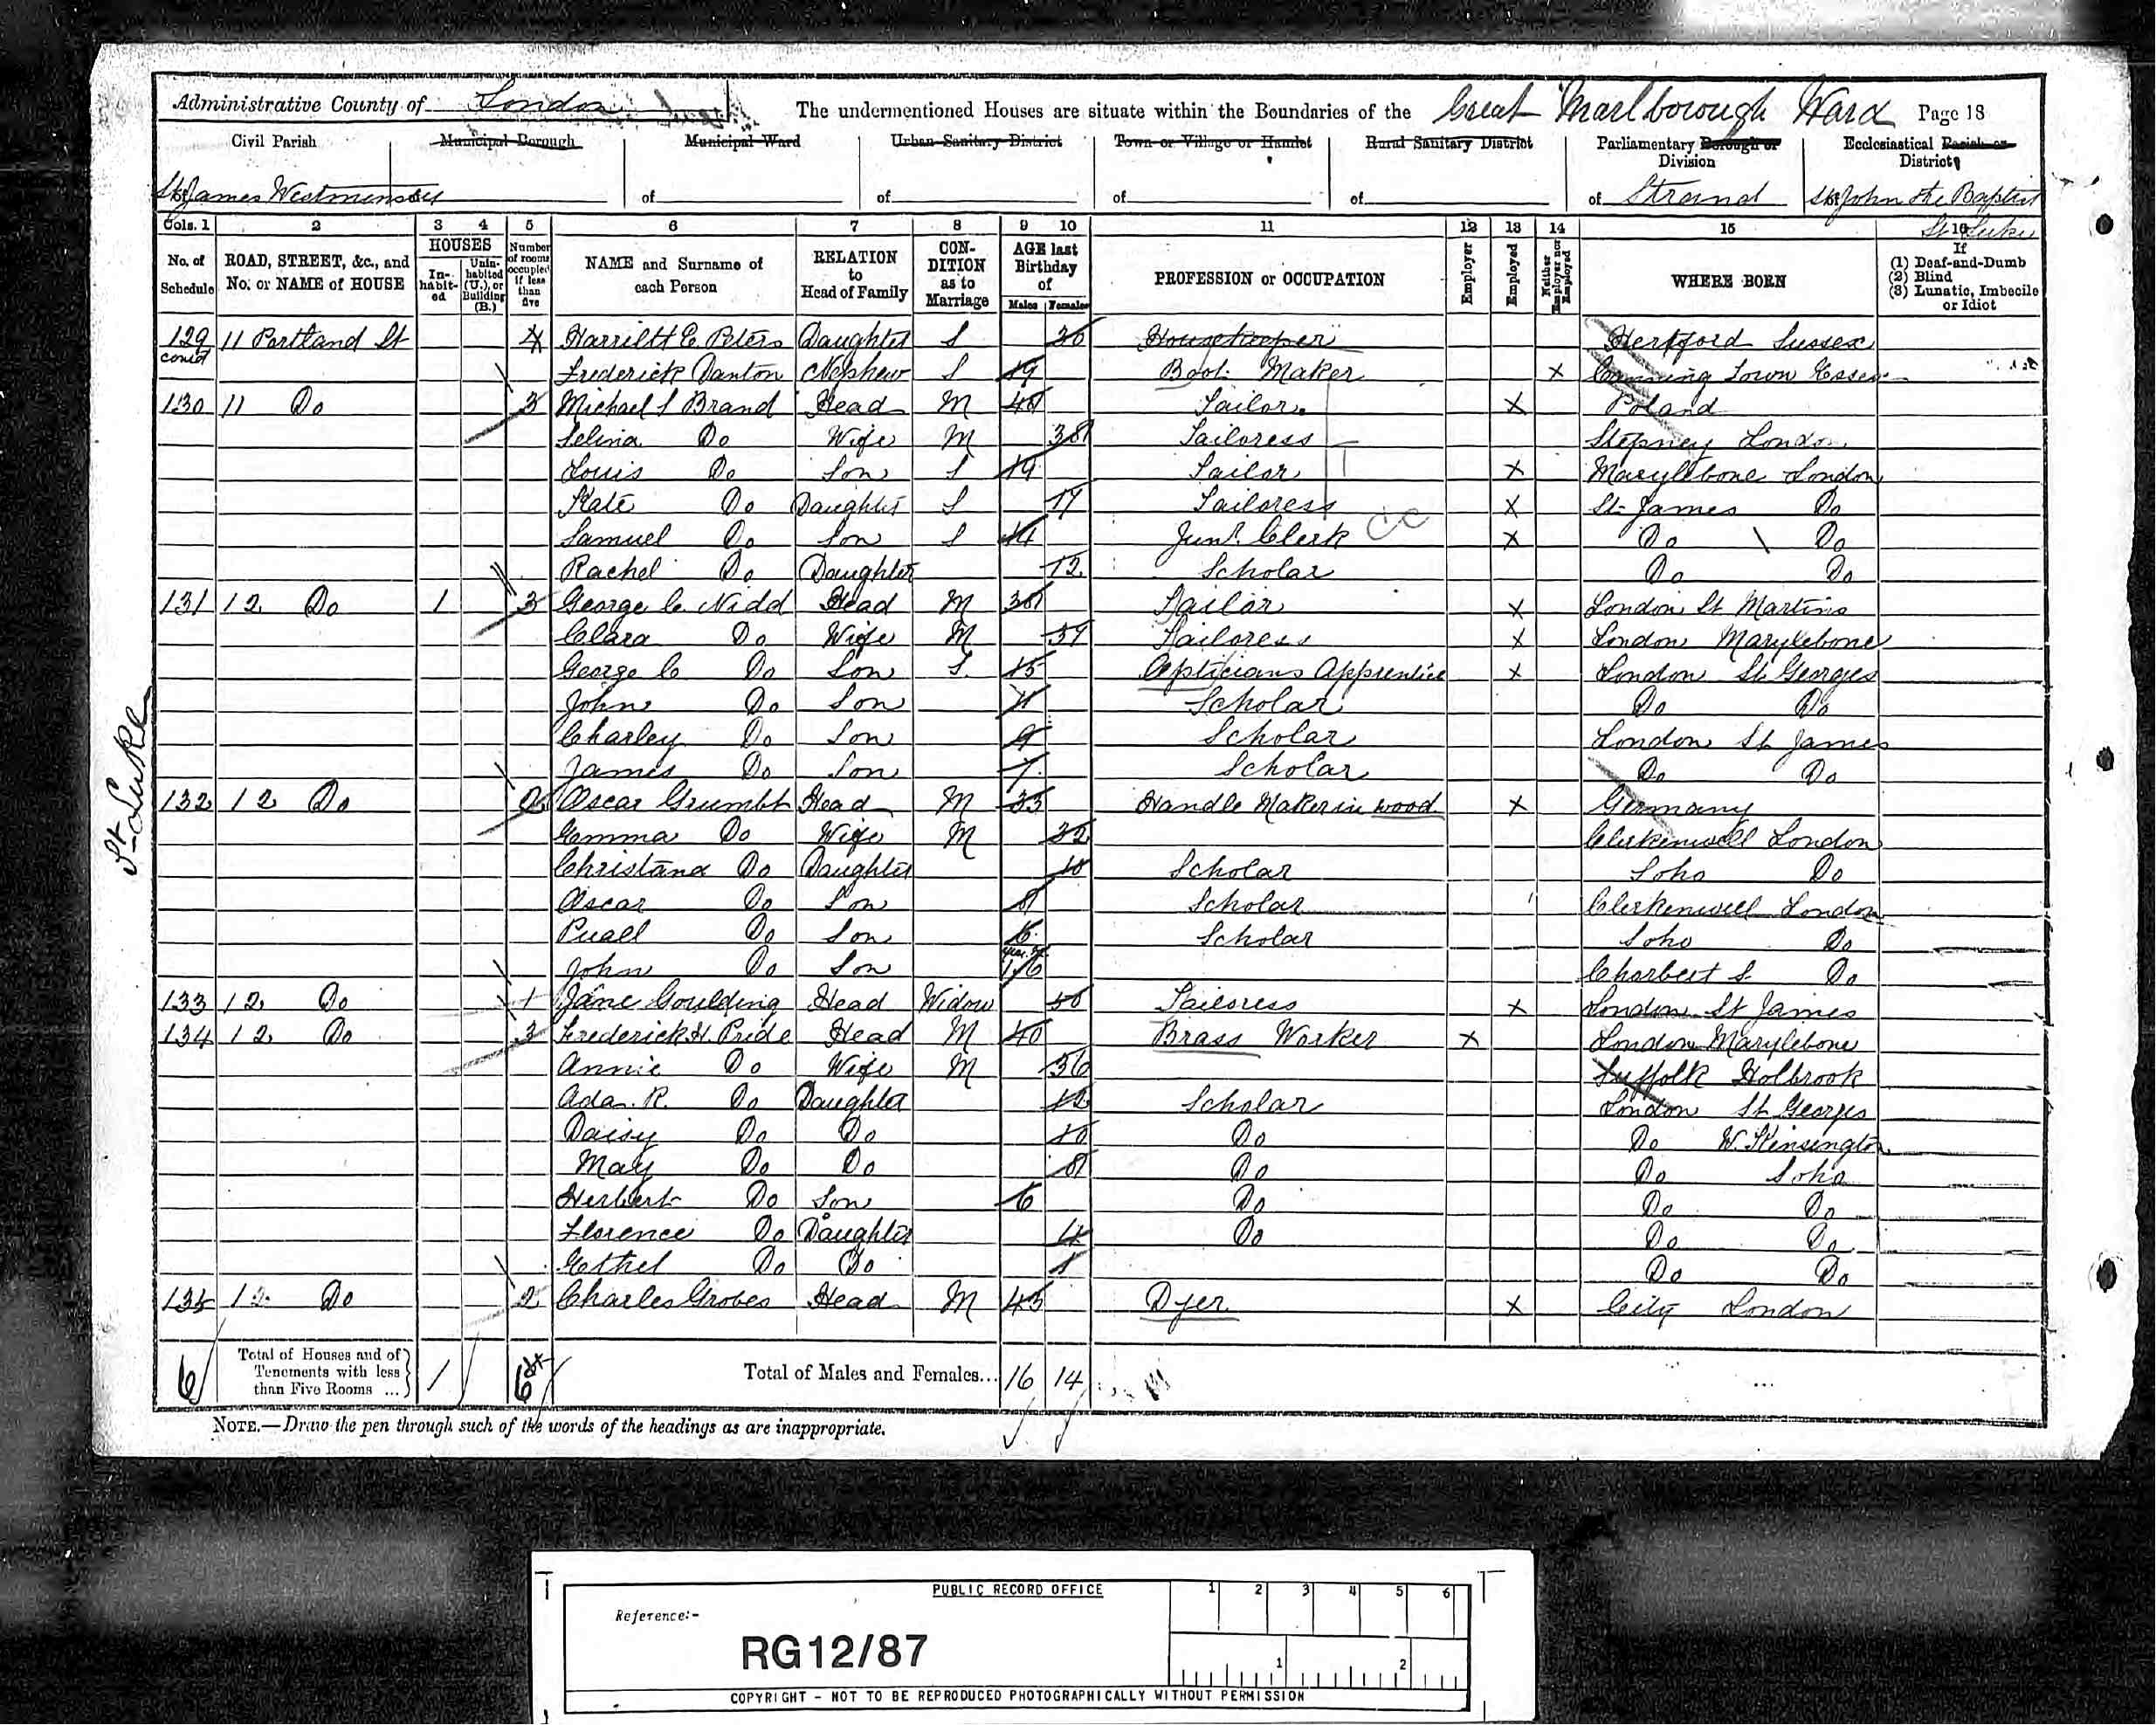 Administrative County of London The undermentioned Houses are situate within the Boundaries of the Great Marlborough Ward Page 18
Civil Parish Municipal Borough Municipal Ward Urban Sanitary District Town or Village or Hamlet Rural Sanitary District Parliamentary Borough or Division Ecclesiastical Parish or District
St James Westminster of of of of of Strand St John the Baptist
St Luke
Cols. 1 2 3 4 5 6 7 8 9 10 11 12 13 14 15 16
No. of Schedule ROAD, STREET, &c., and No. or NAME of HOUSE HOUSES In-habit-ed Unin-habited (U.), or Building (B.) Number of rooms occupied if less than five NAME and Surname of each Person RELATION to Head of Family CON-DITION as to Marriage AGE last Birthday of Males Females PROFESSION or OCCUPATION Employer Employed Neither Employer nor Employed WHERE BORN If (1) Deaf-and-Dumb (2) Blind (3) Lunatic, Imbecile or Idiot
129 contd 11 Portland St 4 Harriett E Peters Daughter S 30 Housekeeper Hertford Sussex
Frederick Danton Nephew S 19 Boot Maker X Canning Town Essex
130 11 Do 3 Michael S Brand Head M 48 Tailor X Poland
Selina Do Wife M 38 Tailoress Stepney London
Louis Do Son S 19 Tailor X Marylebone London
Kate Do Daughter S 17 Tailoress X St James Do
Samuel Do Son S 14 Junr. Clerk CC X Do Do
Rachel Do Daughter 12 Scholar Do Do
131 12 Do 1 3 George C Nidd Head M 38 Tailor X London St Martins
Clara Do Wife M 37 Tailoress X London Marylebone
George C Do Son S 15 Opticians Apprentice X London St Georges
John Do Son 11 Scholar Do Do
Charley Do Son 9 Scholar London St James
James Do Son 7 Scholar Do Do
132 12 Do 2 Oscar Grumbt Head M 33 Handle Maker in wood X Germany
Emma Do Wife M 32 Clerkenwell London
Christana Do Daughter 10 Scholar Soho Do
Oscar Do Son 8 Scholar Clerkenwell London
Puall Do Son 6 Scholar Soho Do
John Do Son 1 6 Charbert S Do
133 12 Do 1 Jane Goulding Head Widow Tailoress X London St James
134 12 Do 3 Frederick H. Pride Head M 40 Brass Worker X London Marylebone
Annie Do Wife M 36 Suffolk Holbrook
Ada. R. Do Daughter 12 Scholar London St Georges
Daisy Do Do 10 Do Do W. Kensington
May Do Do 8 Do Do Soho
Herbert Do Son 6 Do Do Do
Florence Do Daughter 4 Do Do Do
Ethel Do Do 1 Do Do
135 12 Do 2 Charles Grobes Head M 43 Dyer X City London
6 Total of Houses and of Tenements with less than Five Rooms ... 1 6 Total of Males and Females... 16 14
NOTE.—Draw the pen through such of the words of the headings as are inappropriate.
St Lukes
PUBLIC RECORD OFFICE 1 2 3 4 5 6
Reference:-
RG12/87
1 2
COPYRIGHT - NOT TO BE REPRODUCED PHOTOGRAPHICALLY WITHOUT PERMISSION